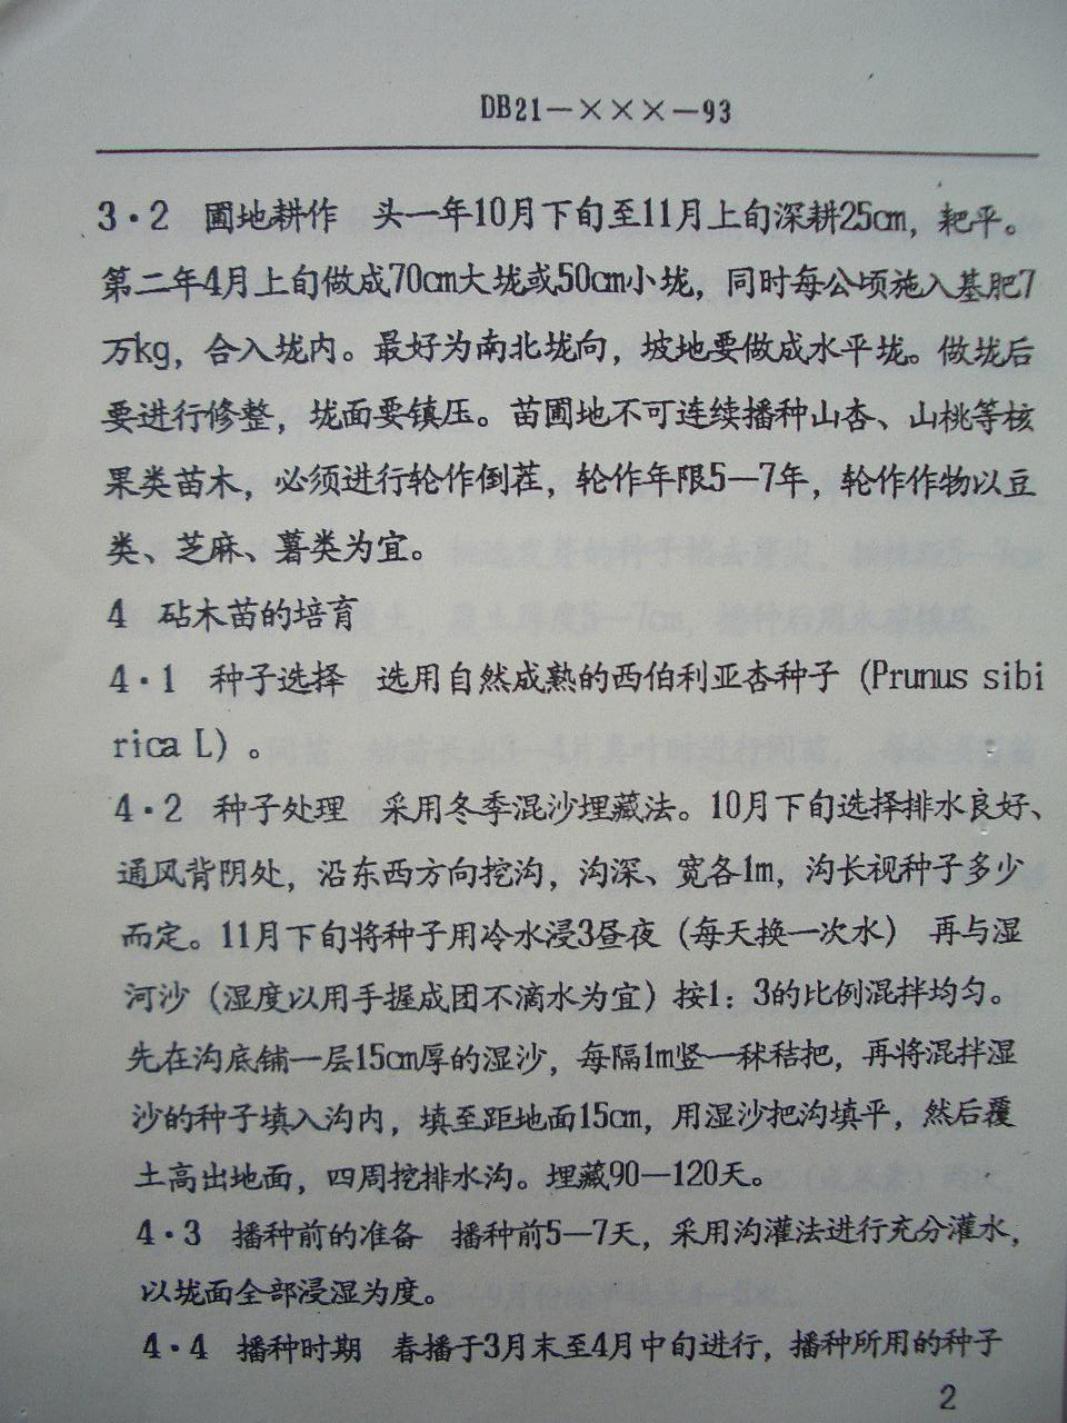 DB21—×××—93
3·2 圃地耕作 头一年10月下旬至11月上旬深耕25cm，耙平。
第二年4月上旬做成70cm大垅或50cm小垅，同时每公顷施入基肥7
万kg，合入垅内。最好为南北垅向，坡地要做成水平垅。做垅后
要进行修整，垅面要镇压。苗圃地不可连续播种山杏、山桃等核
果类苗木，必须进行轮作倒茬，轮作年限5—7年，轮作作物以豆
类、芝麻、薯类为宜。
4 砧木苗的培育
4·1 种子选择 选用自然成熟的西伯利亚杏种子（Prunus sibi
rica L）。
4·2 种子处理 采用冬季混沙埋藏法。10月下旬选择排水良好、
通风背阴处，沿东西方向挖沟，沟深、宽各1m，沟长视种子多少
而定。11月下旬将种子用冷水浸3昼夜（每天换一次水） 再与湿
河沙（湿度以用手握成团不滴水为宜）按1：3的比例混拌均匀。
先在沟底铺一层15cm厚的湿沙，每隔1m竖一秫秸把，再将混拌湿
沙的种子填入沟内，填至距地面15cm，用湿沙把沟填平，然后覆
土高出地面，四周挖排水沟。埋藏90—120天。
4·3 播种前的准备 播种前5—7天，采用沟灌法进行充分灌水，
以垅面全部浸湿为度。
4·4 播种时期 春播于3月末至4月中旬进行，播种所用的种子
2